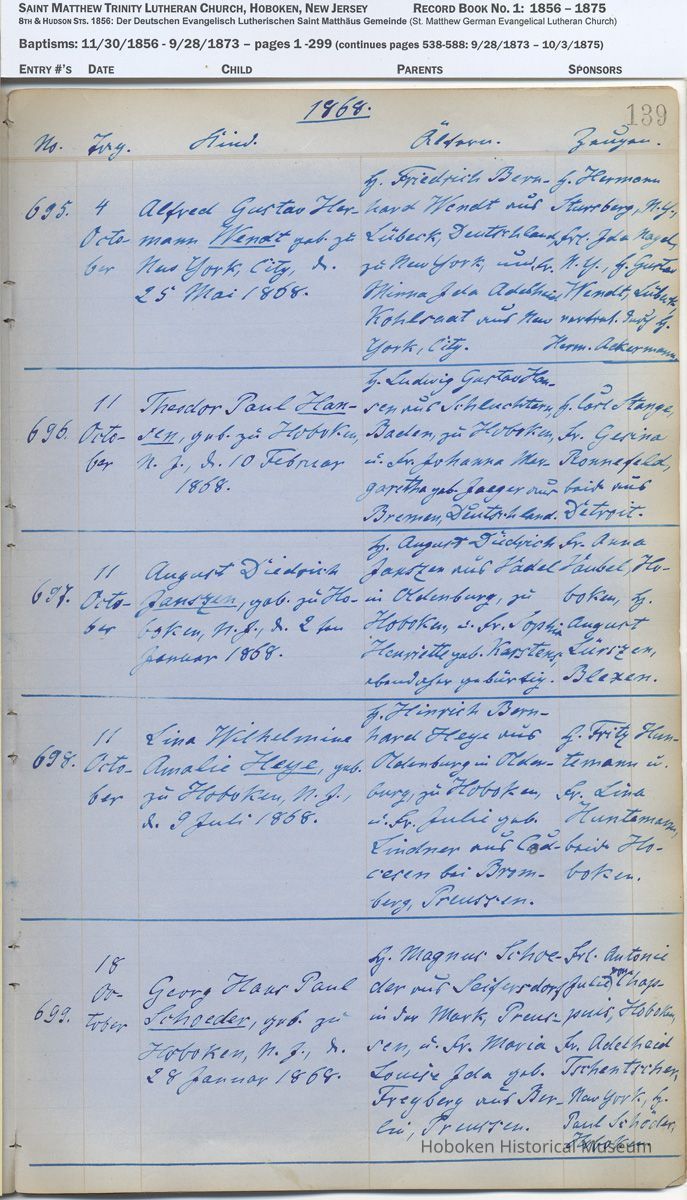 SAINT MATTHEW TRINITY LUTHERAN CHURCH, HOBOKEN, NEW JERSEY RECORD BOOK NO. 1: 1856 – 1875
8TH & HUDSON STS. 1856: Der Deutschen Evangelisch Lutherischen Saint Matthäus Gemeinde (St. Matthew German Evangelical Lutheran Church)
Baptisms: 11/30/1856 - 9/28/1873 – pages 1 -299 (continues pages 538-588: 9/28/1873 – 10/3/1875)
ENTRY #'S DATE CHILD PARENTS SPONSORS
1868. 139
No. Tag. Kind. Ältern. Zeugen.
695.
4
Octo-
ber
Alfred Gustav Her-
mann Wendt geb. zu
New York, City, d.
25 Mai 1868.
H. Friedrich Bern-
hard Wendt aus
Lübeck, Deutschland,
zu New York, und Fr.
Minna Ida Adelheid
Kohlsaat aus New
York, City.
H. Hermann
Stursberg, N.Y.,
Frl. Ida Nagel,
N.Y., H. Gustav
Wendt, Lübeck,
vertret. durch H.
Herm. Ackermann
696.
11
Octo-
ber
Theodor Paul Han-
sen, geb. zu Hoboken,
N. J., d. 10 Februar
1868.
H. Ludwig Gustav Han-
sen aus Schluchtern,
Baden, zu Hoboken,
u. Fr. Johanna Mar-
garetha geb. Jaeger aus
Bremen, Deutschland.
H. Carl Stange,
Fr. Gesina
Ronnefeld,
beide aus
Detroit.
697.
11
Octo-
ber
August Diedrich
Janszen, geb. zu Ho-
boken, N. J., d. 2 ten
Januar 1868.
H. August Diedrich
Janszen aus Vadel
in Oldenburg, zu
Hoboken, u. Fr. Sophia
Henriette geb. Karstens,
ebendaher gebürtig.
Fr. Anna
Häubel, Ho-
boken, H.
August
Lürszen,
Blexen.
698.
11
Octo-
ber
Lina Wilhelmine
Amalie Heye, geb.
zu Hoboken, N. J.,
d. 9 Juli 1868.
H. Hinrich Bern-
hard Heye aus
Oldenburg in Olden-
burg, zu Hoboken,
u. Fr. Julie geb.
Lindner aus
bei Brom-
berg, Preussen.
H. Fritz Hun-
temann u.
Fr. Lina
Huntemann,
beide Ho-
boken.
699.
18
Oc-
tober
Georg Hans Paul
Schoeder, geb. zu
Hoboken, N. J., d.
28 Januar 1868.
H. Magnus Schoe-
der aus Seifersdorf
in der Mark, Preus-
sen, u. Fr. Maria
Louise Ida geb.
Freyberg aus Ber-
lin, Preussen.
Frl. Antonie
Julie von Chap-
puis, Hoboken,
Fr. Adelheid
Tschentscher,
New York, H.
Paul Schöder,
Hoboken.
Hoboken Historical Museum